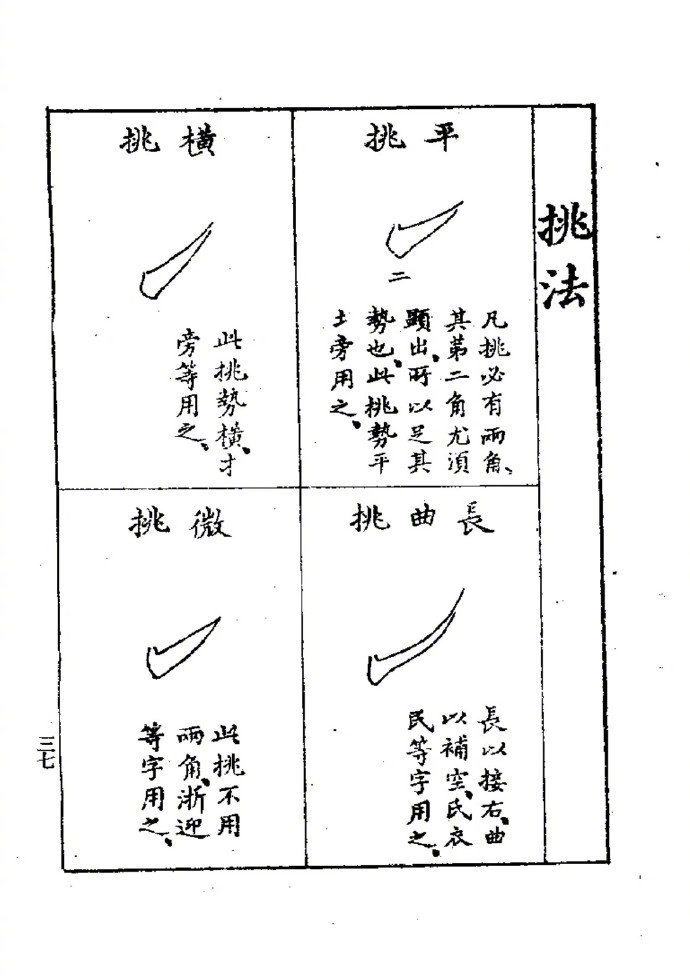 挑法
平挑
二
凡挑必有兩角、
其第二角尤須
顯出、所以足其
勢也、此挑勢平
土旁用之、
橫挑
此挑勢橫、才
旁等用之、
長曲挑
長以接右、曲
以補空、氏衣
民等字用之、
微挑
此挑不用
兩角、浙迎
等字用之、
三七